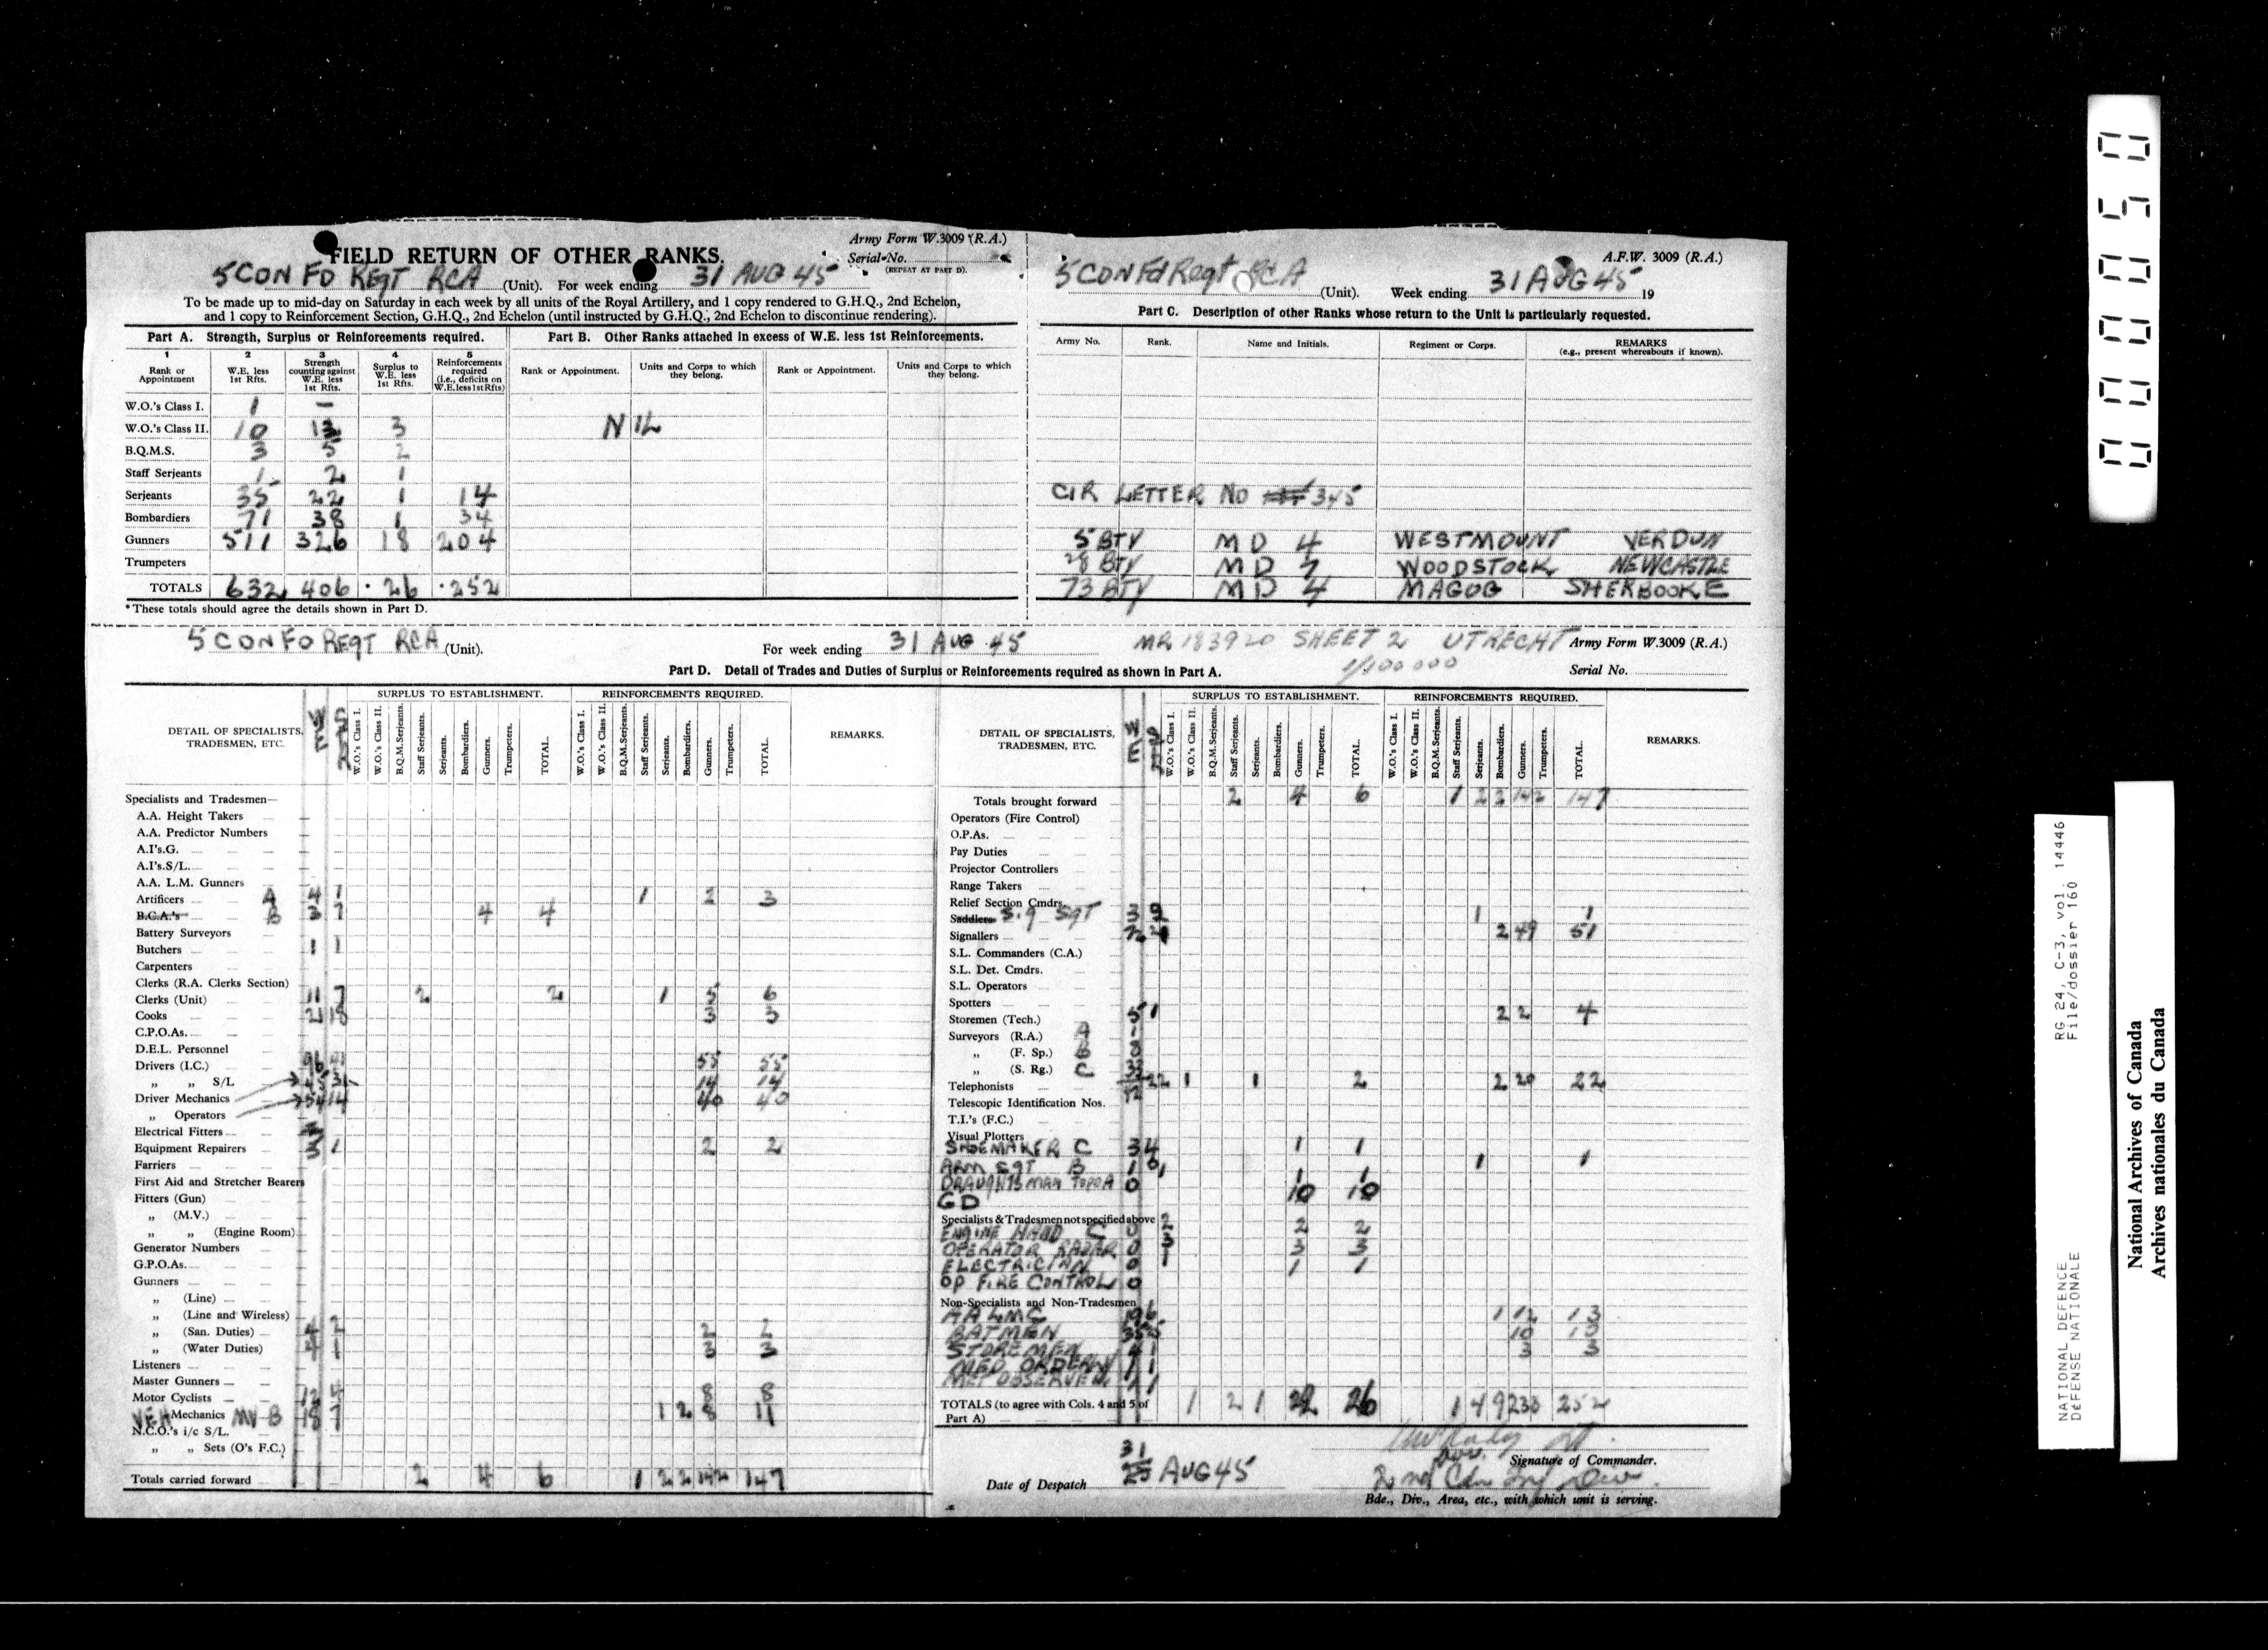 FIELD RETURN OF OTHER RANKS.
Army Form W.3009 (R.A.)
Serial No.
(REPEAT AT PART D).
5 CDN FD REGT RCA (Unit). For week ending 31 AUG 45
To be made up to mid-day on Saturday in each week by all units of the Royal Artillery, and 1 copy rendered to G.H.Q., 2nd Echelon,
and 1 copy to Reinforcement Section, G.H.Q., 2nd Echelon (until instructed by G.H.Q., 2nd Echelon to discontinue rendering).
Part A. Strength, Surplus or Reinforcements required.
1 2 3 4 5
Rank or Appointment
W.E. less 1st Rfts.
Strength counting against W.E. less 1st Rfts.
Surplus to W.E. less 1st Rfts.
Reinforcements required (i.e., deficits on W.E. less 1st Rfts)
W.O.'s Class I. 1 —
W.O.'s Class II. 10 13 3
B.Q.M.S. 3 5 2
Staff Serjeants 1 2 1
Serjeants 35 22 1 14
Bombardiers 71 38 1 34
Gunners 511 326 18 204
Trumpeters
TOTALS 632 406 26 252
*These totals should agree the details shown in Part D.
Part B. Other Ranks attached in excess of W.E. less 1st Reinforcements.
Rank or Appointment. Units and Corps to which they belong. Rank or Appointment. Units and Corps to which they belong.
NIL
A.F.W. 3009 (R.A.)
5 CDN Fd Regt RCA (Unit). Week ending 31 AUG 45 19
Part C. Description of other Ranks whose return to the Unit is particularly requested.
Army No. Rank. Name and Initials. Regiment or Corps. REMARKS
(e.g., present whereabouts if known).
CIR LETTER NO 345
5 BTY MD 4 WESTMOUNT VERDUN
28 BTY MD 7 WOODSTOCK NEWCASTLE
73 BTY MD 4 MAGOG SHERBOOKE
5 CDN FD REGT RCA (Unit). For week ending 31 AUG 45 MR 183920 SHEET 2 UTRECHT Army Form W.3009 (R.A.)
1/100 000
Part D. Detail of Trades and Duties of Surplus or Reinforcements required as shown in Part A.
Serial No.
DETAIL OF SPECIALISTS, TRADESMEN, ETC.
WE
SURPLUS TO ESTABLISHMENT.
W.O.'s Class I. W.O.'s Class II. B.Q.M.Serjeants. Staff Serjeants. Serjeants. Bombardiers. Gunners. Trumpeters. TOTAL.
REINFORCEMENTS REQUIRED.
W.O.'s Class I. W.O.'s Class II. B.Q.M.Serjeants. Staff Serjeants. Serjeants. Bombardiers. Gunners. Trumpeters. TOTAL.
REMARKS.
Specialists and Tradesmen—
A.A. Height Takers
A.A. Predictor Numbers
A.I's.G.
A.I's.S/L.
A.A. L.M. Gunners
Artificers A 4 1 1 2 3
B.C.A.'s B 3 7 4 4
Battery Surveyors
Butchers 1 1
Carpenters
Clerks (R.A. Clerks Section)
Clerks (Unit) 11 7 2 2 1 5 6
Cooks 21 18 3 3
C.P.O.As.
D.E.L. Personnel
Drivers (I.C.) 96 41 55 55
„ „ S/L 45 31 14 14
Driver Mechanics 54 14 40 40
„ Operators
Electrical Fitters
Equipment Repairers 3 1 2 2
Farriers
First Aid and Stretcher Bearers
Fitters (Gun)
„ (M.V.)
„ „ (Engine Room)
Generator Numbers
G.P.O.As.
Gunners
„ (Line)
„ (Line and Wireless)
„ (San. Duties) 4 2 2 2
„ (Water Duties) 4 1 3 3
Listeners
Master Gunners
Motor Cyclists 12 4 8 8
VEH Mechanics MV B 18 7 1 2 8 11
N.C.O.'s i/c S/L.
„ „ Sets (O's F.C.)
Totals carried forward 2 4 6 1 2 2 142 147
DETAIL OF SPECIALISTS, TRADESMEN, ETC.
WE
SURPLUS TO ESTABLISHMENT.
W.O.'s Class I. W.O.'s Class II. B.Q.M.Serjeants. Staff Serjeants. Serjeants. Bombardiers. Gunners. Trumpeters. TOTAL.
REINFORCEMENTS REQUIRED.
W.O.'s Class I. W.O.'s Class II. B.Q.M.Serjeants. Staff Serjeants. Serjeants. Bombardiers. Gunners. Trumpeters. TOTAL.
REMARKS.
Totals brought forward 2 4 6 1 2 2 142 147
Operators (Fire Control)
O.P.As.
Pay Duties
Projector Controllers
Range Takers
Relief Section Cmdrs.
Saddlers Sig Sgt 3 2 1 1
Signallers 2 49 51
S.L. Commanders (C.A.)
S.L. Det. Cmdrs.
S.L. Operators
Spotters
Storemen (Tech.) 5 1 2 2 4
Surveyors (R.A.) A
„ (F. Sp.) B
„ (S. Rg.) C
Telephonists 22 1 1 2 2 20 22
Telescopic Identification Nos.
T.I.'s (F.C.)
Visual Plotters
SHOEMAKER C 3 4 1 1
ARM SGT B 1 0 1 1
DRAUGHTSMAN TOPO A 0 1 1 1
GD 10 10
Specialists & Tradesmen not specified above
ENGINE HAND C 0 2 2 2
OPERATOR RADER 0 3 3 3
ELECTRICIAN 0 1 1 1
OP FIRE CONTROL 0
Non-Specialists and Non-Tradesmen
AALMG 19 6 1 12 13
BATMEN 10 10
STOREMEN 4 1 3 3
MED ORDERLY 1 1
MET OBSERVER 1 1
TOTALS (to agree with Cols. 4 and 5 of Part A) 1 2 1 22 26 1 4 9 238 252
Signature of Commander.
Date of Despatch 31 AUG 45
2nd Cdn Inf Div
Bde., Div., Area, etc., with which unit is serving.
000050
RG 24, C-3, vol. 14446
File/dossier 160
NATIONAL DEFENCE
DÉFENSE NATIONALE
National Archives of Canada
Archives nationales du Canada